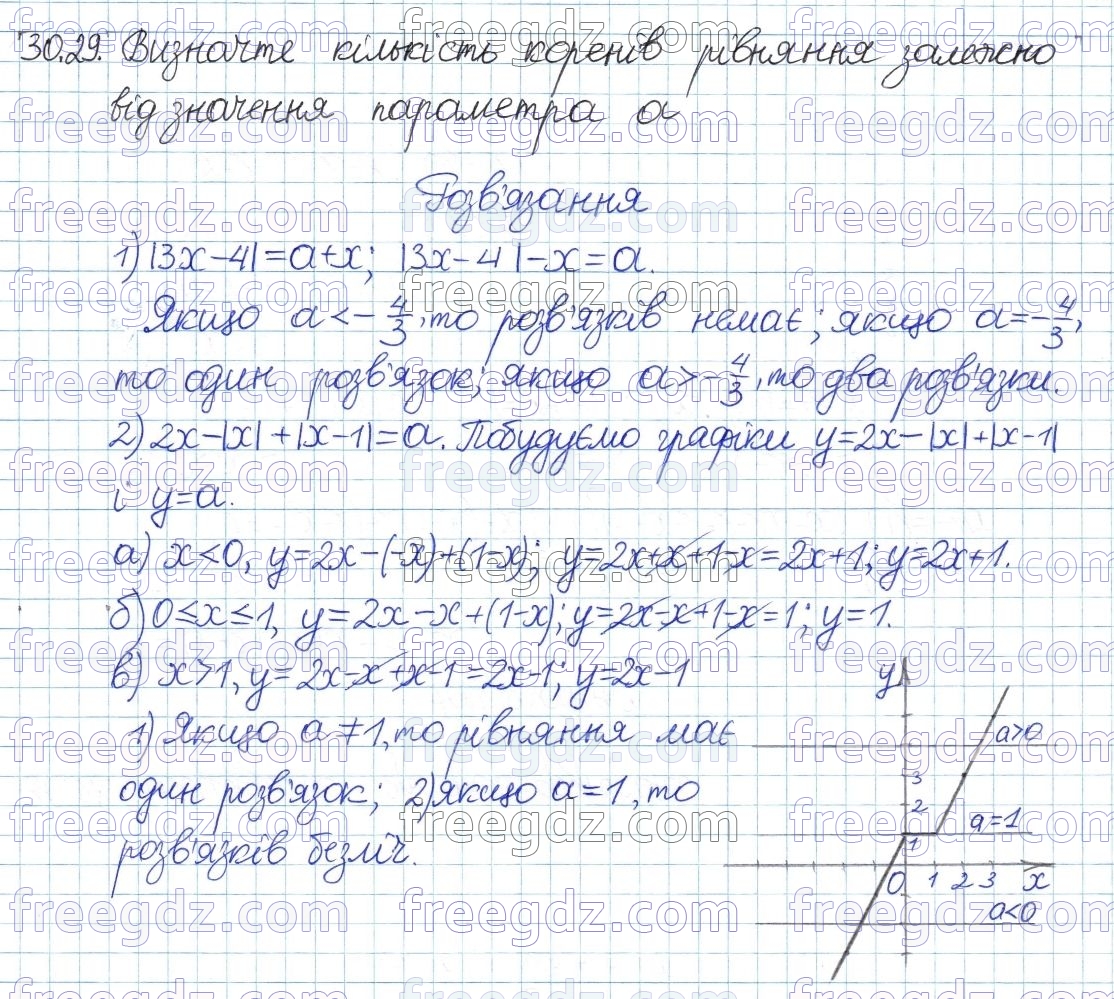 30.29. Визначте кількість коренів рівняння залежно
від значення параметра a
Розв'язання
1) |3x-4|=a+x; |3x-4|-x=a.
Якщо a<-4/3, то розв'язків немає; якщо a=-4/3,
то один розв'язок; якщо a>-4/3, то два розв'язки.
2) 2x-|x|+|x-1|=a. Побудуємо графіки y=2x-|x|+|x-1|
і y=a.
а) x<0, y=2x-(-x)+(1-x); y=2x+x+1-x=2x+1; y=2x+1.
б) 0≤x≤1, y=2x-x+(1-x); y=2x-x+1-x=1; y=1.
в) x>1, y=2x-x+x-1=2x-1; y=2x-1
1) Якщо a≠1, то рівняння має
один розв'язок; 2) якщо a=1, то
розв'язків безліч.
y
a>0
3
2
a=1
1
0 1 2 3 x
a<0
freegdz.com